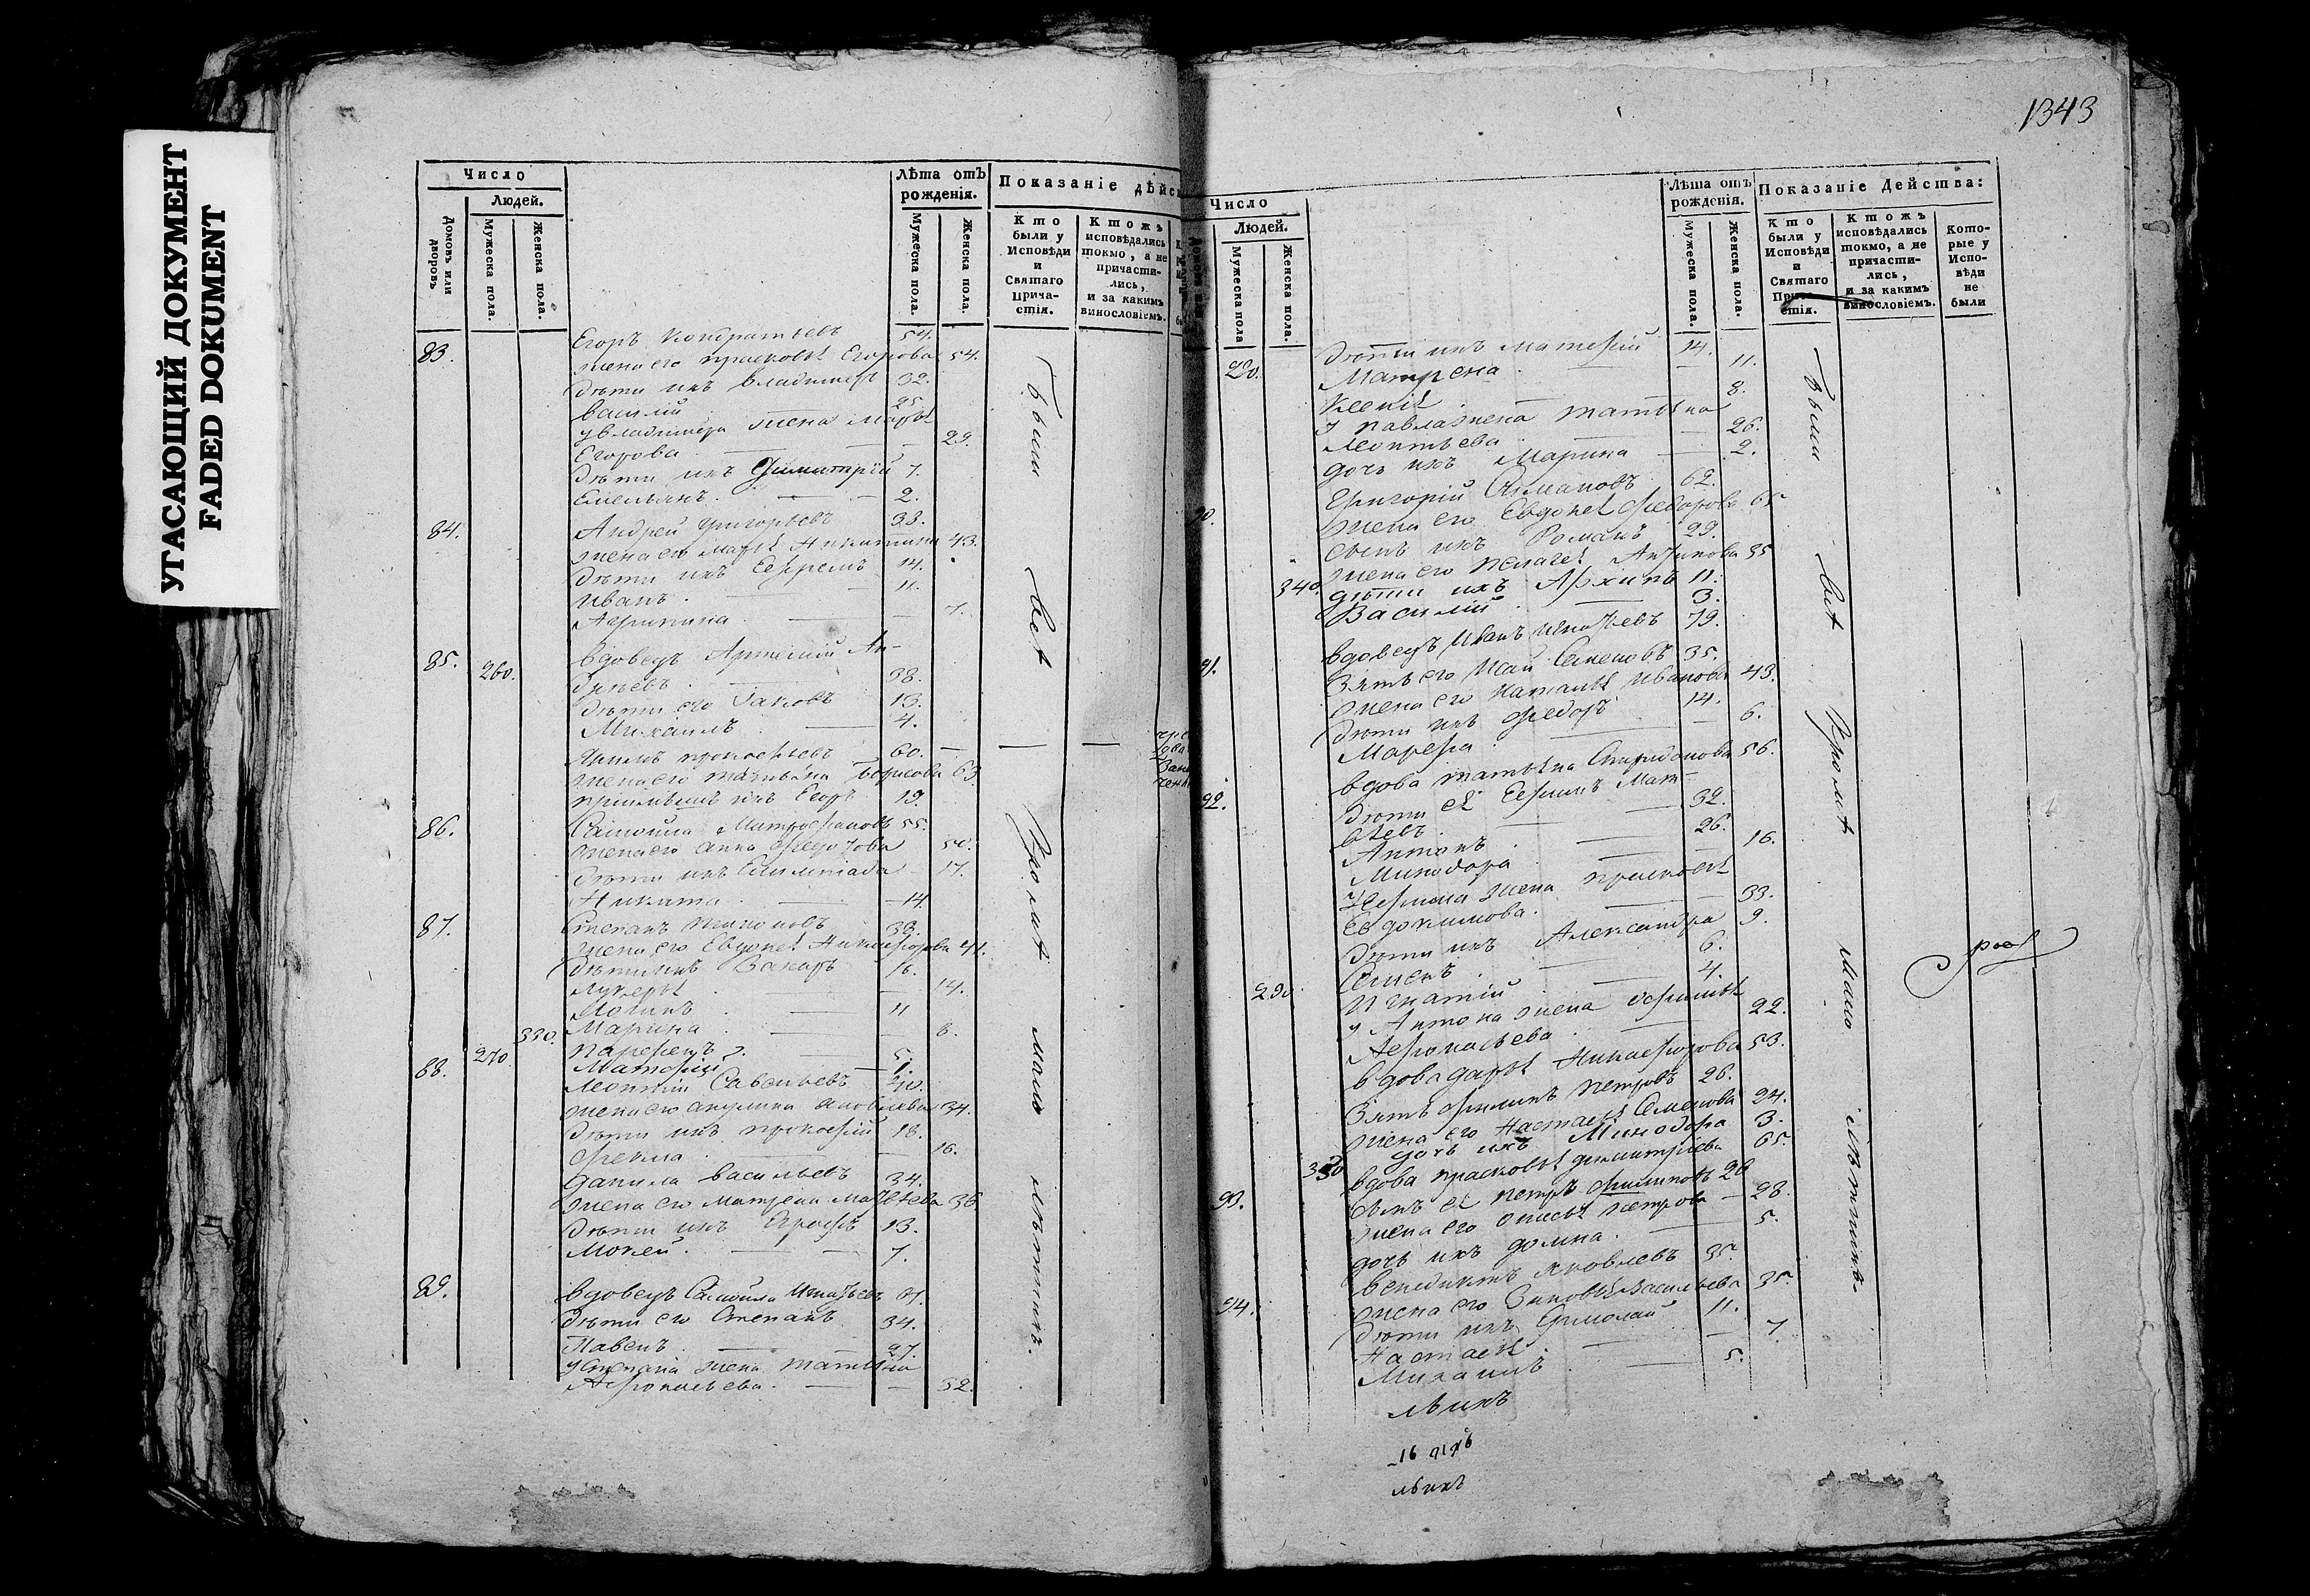 УГАСАЮЩИЙ ДОКУМЕНТ
FADED DOKUMENT
Число
Людей.
Домовъ или дворовъ
Мужеска пола.
Женска пола.
Лѣта отъ рожденія.
Мужеска пола.
Женска пола.
Показаніе дѣйс
Кто были у Исповѣди и Святаго Прича-стія.
Ктожъ исповѣдались токмо, а не причасти-лись, и за какимъ винословіемъ.
83. Егоръ Кондратьевъ 54.
жена его Прасковья Егорова 54.
дѣти ихъ Владимеръ 32.
Василій 25.
у Владимера жена Марья
Егорова 29.
дѣти ихъ Димитрій 7.
Емельянъ. 2.
84. Андрей Григорьевъ 33.
жена его Марья Никитина 43.
дѣти ихъ Ефремъ 14.
Иванъ. 11.
Агрипина. 7.
85. вдовецъ Артемій Ан-
260. дреевъ. 38.
дѣти его Іаковъ 13.
Михаилъ. 4.
Якимъ Прокофьевъ 60.
жена его Татьяна Борисова 63
Егоръ 19.
86. Самойла Митрофановъ 55.
жена его Анна Федотова 50.
дѣти ихъ 17.
Никита. 14.
87. Степанъ 39.
жена его Евдокея Никифорова 41.
дѣти ихъ Захаръ 16.
Лукерья 14.
11
330. Марина 8.
270. Парфенъ 5.
Матфій 1.
88. Леонтій Савельевъ 40.
жена его Акулина Яковлева 34.
дѣти ихъ Прокофій 18.
Фекла. 16.
Данила Васильевъ 34.
жена его Матрена Матвѣева 36
дѣти ихъ 13.
Мокей. 7.
89. вдовецъ Самойла Игнатьевъ
дѣти его Степанъ 34.
Павелъ. 27.
у Степана жена Татьяна
Афонасьева. 32.
Были всѣ Христ Мало лѣтнихъ.
1343
Число
Людей.
Мужеска пола
Женска пола.
Лѣта отъ рожденія.
Мужеска пола.
Женска пола.
Показаніе Действа:
Кто были у Исповѣди и Святаго Прича-стія.
Ктожъ исповѣдались токмо, а не причасти-лись, и за какимъ винословіемъ.
Кото-рые у Испо-вѣди не были
дѣти ихъ Матфій 14.
Матрена 11.
8.
у Павла жена Татьяна
Леонтьева 26.
дочь ихъ Марина 2.
90. Григорій 62.
жена его Евдокея Федорова 65
сынъ ихъ Романъ 29.
жена его Пелагея Антипова 35
340. дѣти ихъ Архипъ 11.
Василій 3.
91. вдовецъ Иванъ Игнатьевъ 79.
зять его Исай Семеновъ 35.
жена его Наталья Иванова 43.
дѣти ихъ Федоръ 14.
Марфа. 6.
92. вдова Татьяна Спиридонова 56.
дѣти ея Ефимъ Мат-
вѣевъ. 32.
Антонъ. 26.
Минодора 16.
у Ефима жена Прасковья
Евдокимова. 33.
дѣти ихъ Александра 9.
Семенъ. 6.
290. Игнатій 4.
у Антона жена Офимья
Афонасьева 22.
вдова Дарья Никифорова 53.
зять Филипъ Петровъ 26.
жена его Настасья Семенова 24.
дочь ихъ Минодора 3.
350. вдова Прасковья Димитріева 65.
93. сынъ ея Петръ Филиповъ 26
жена его Анисья Петрова 28.
дочь ихъ Домна. 5.
94. Венедиктъ Яковлевъ 35.
жена его Зиновья Васильева 35.
дѣти ихъ Ермолай 11.
Настасья 7.
Михаилъ 5.
Были всѣ Мало лѣтнихъ.